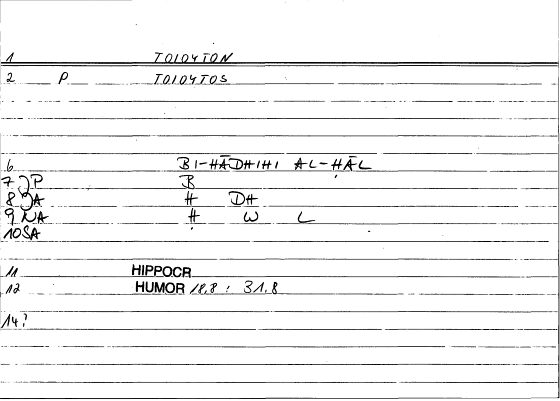 1 TOIOYTON
2 P TOIOYTOS
6 BI-HĀDHIHI AL-ḤĀL
7 JP B
8 JA H DH
9 NA Ḥ W L
10 SA
11 HIPPOCR
12 HUMOR 18,8 : 31,8
14?